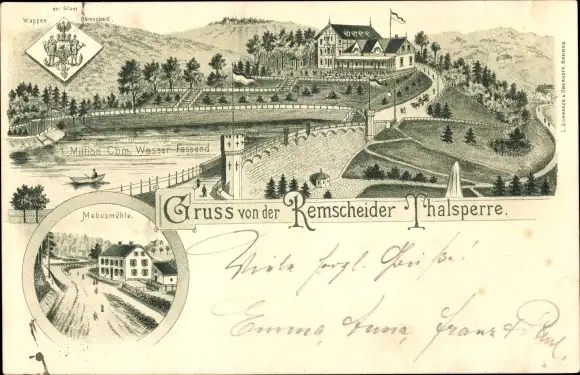 Wappen der Stadt Remscheid.
1 Million Cbm. Wasser fassend
L. Schwarze & Oberhoff, Barmen
Gruss von der Remscheider Thalsperre.
Mebusmühle.
Viele herzl. Grüße!
Emma, Anna, Franz & Paul